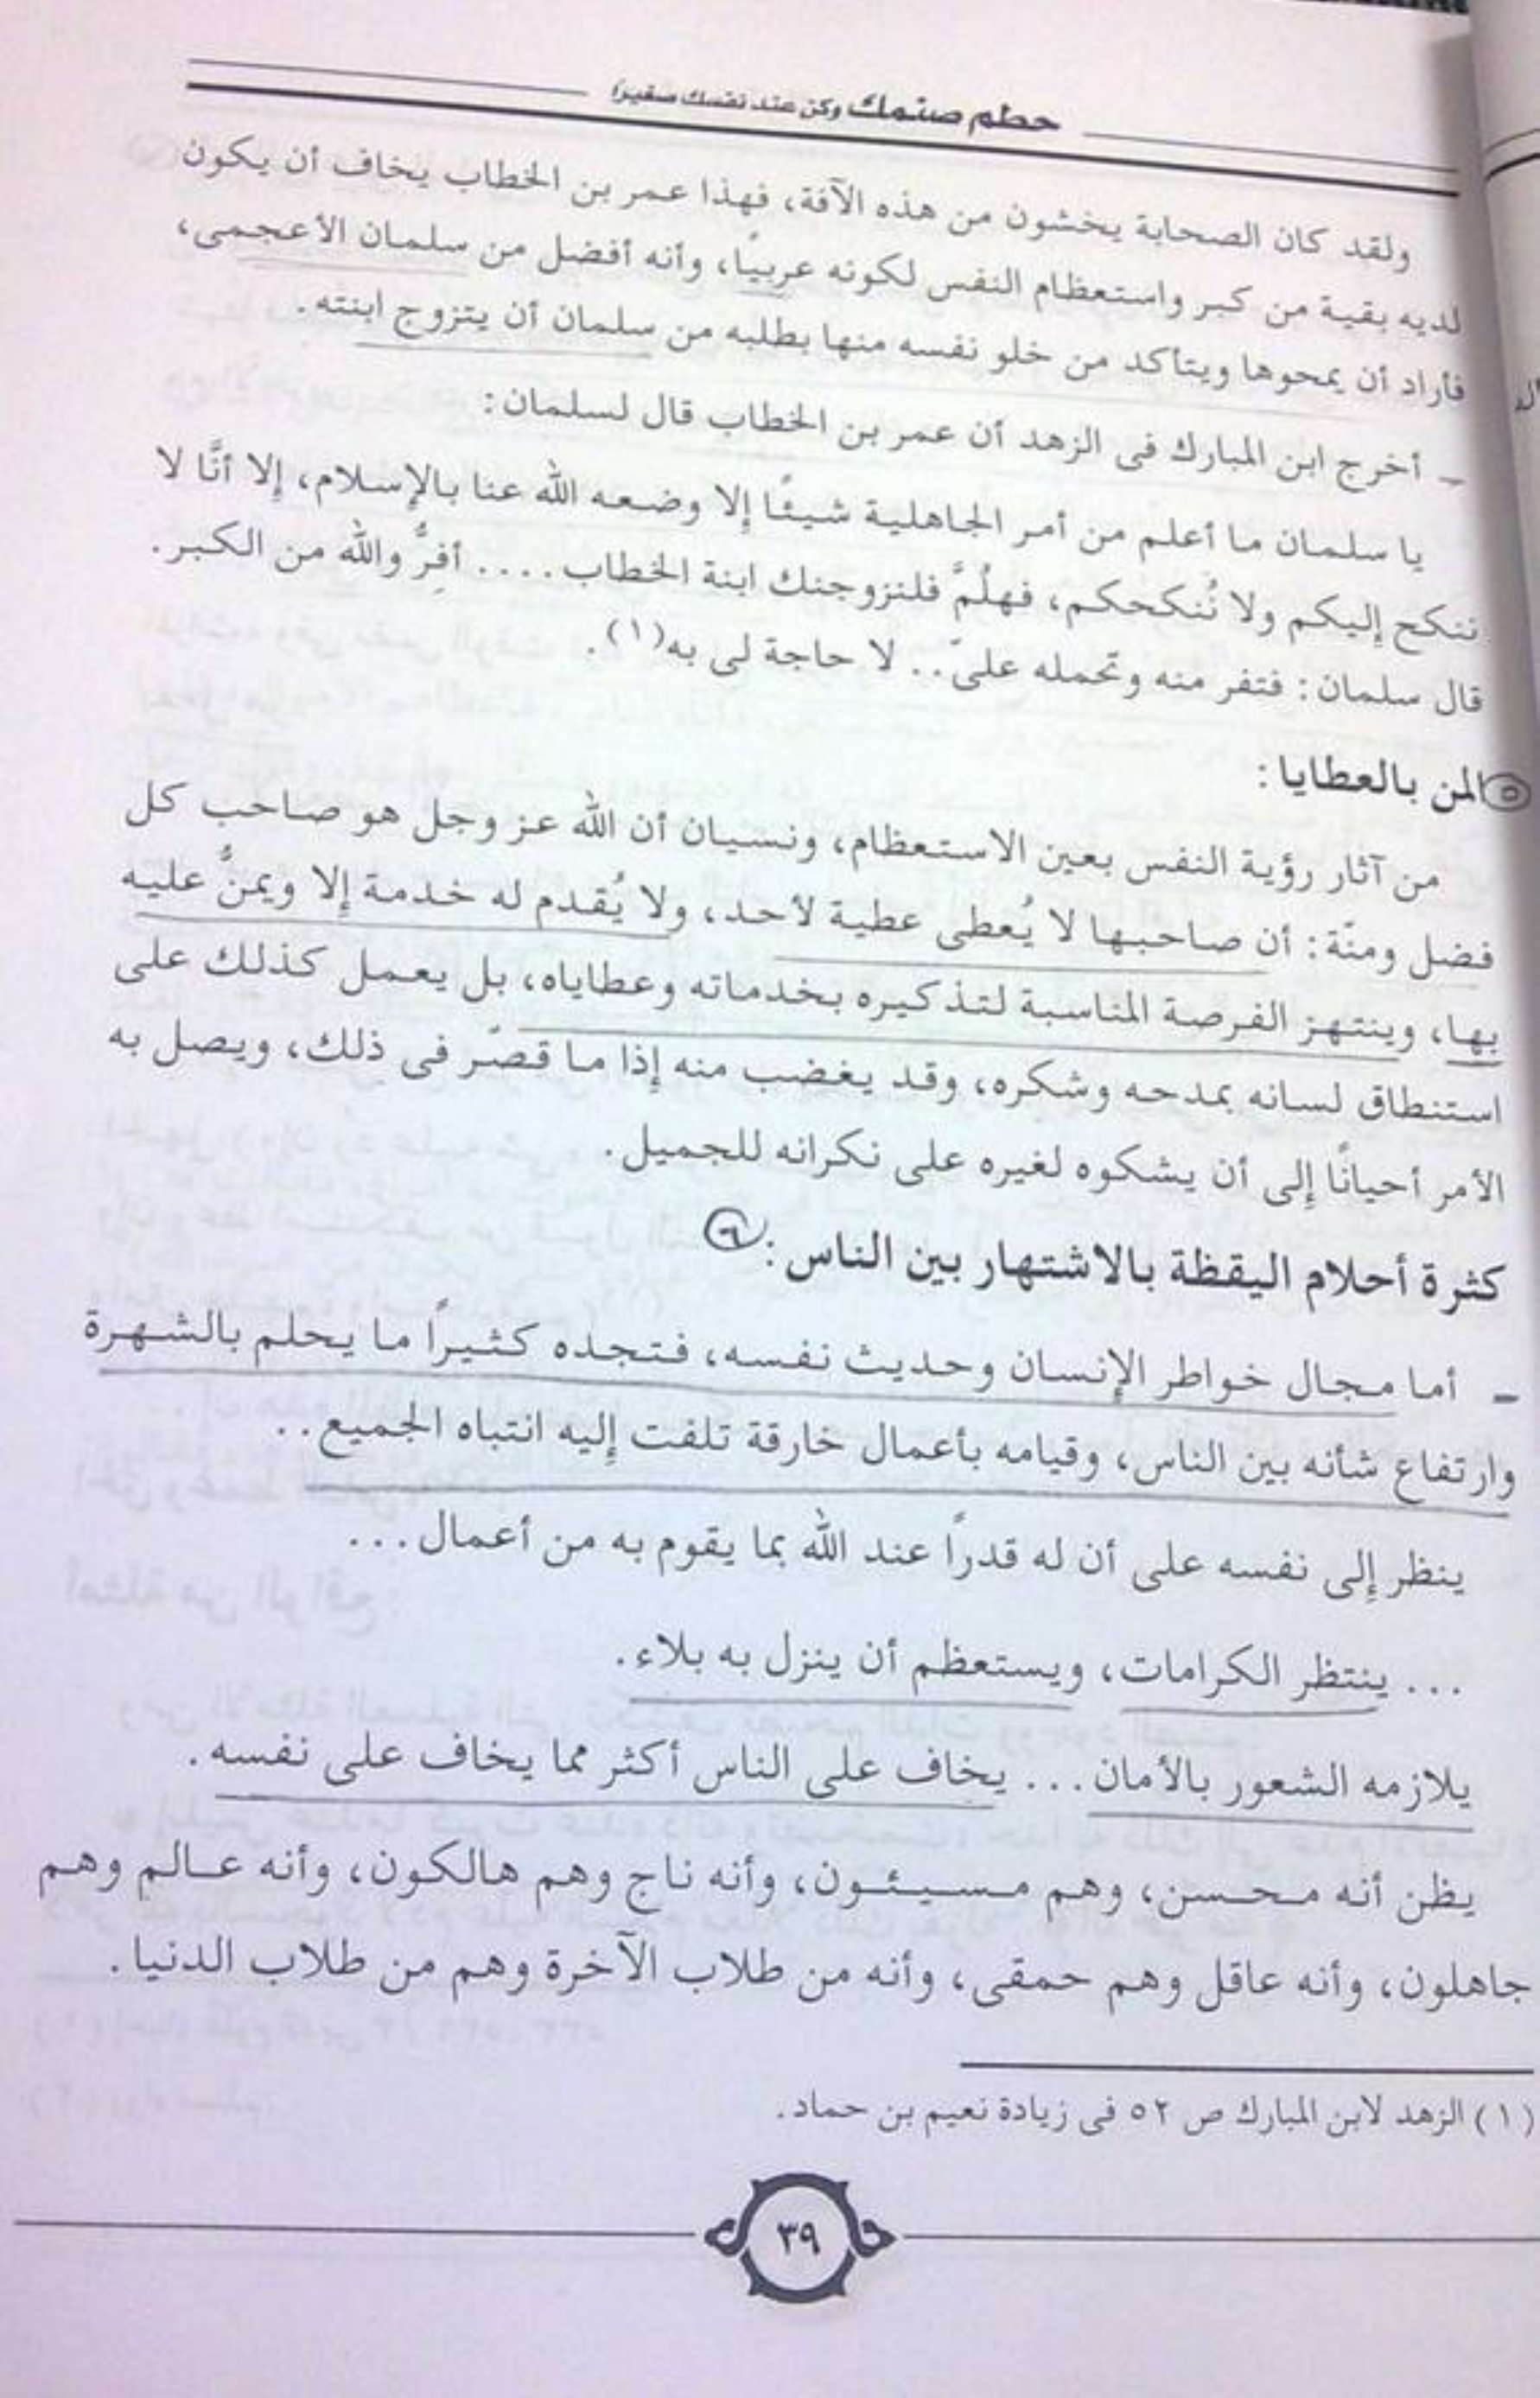 حطم صنمك وكن عند نفسك صغيرًا
ولقد كان الصحابة يخشون من هذه الآفة، فهذا عمر بن الخطاب يخاف أن يكون
لديه بقية من كبر واستعظام النفس لكونه عربيًا، وأنه أفضل من سلمان الأعجمى،
فأراد أن يمحوها ويتأكد من خلو نفسه منها بطلبه من سلمان أن يتزوج ابنته.
ـ أخرج ابن المبارك فى الزهد أن عمر بن الخطاب قال لسلمان:
يا سلمان ما أعلم من أمر الجاهلية شيئًا إلا وضعه الله عنا بالإسلام، إلا أنَّا لا
ننكح إليكم ولا نُنكحكم، فهلُمَّ فلنزوجنك ابنة الخطاب.... أفِرُّ والله من الكبر.
قال سلمان: فتفر منه وتحمله علىّ.. لا حاجة لى به(١).
٥ المن بالعطايا:
من آثار رؤية النفس بعين الاستعظام، ونسيان أن الله عز وجل هو صاحب كل
فضل ومنّة: أن صاحبها لا يُعطى عطية لأحد، ولا يُقدم له خدمة إلا ويمنُّ عليه
بها، وينتهز الفرصة المناسبة لتذكيره بخدماته وعطاياه، بل يعمل كذلك على
استنطاق لسانه بمدحه وشكره، وقد يغضب منه إذا ما قصّر فى ذلك، ويصل به
الأمر أحيانًا إلى أن يشكوه لغيره على نكرانه للجميل.
كثرة أحلام اليقظة بالاشتهار بين الناس: ٦
ـ أما مجال خواطر الإنسان وحديث نفسه، فتجده كثيرًا ما يحلم بالشهرة
وارتفاع شأنه بين الناس، وقيامه بأعمال خارقة تلفت إليه انتباه الجميع..
ينظر إلى نفسه على أن له قدرًا عند الله بما يقوم به من أعمال...
... ينتظر الكرامات، ويستعظم أن ينزل به بلاء.
يلازمه الشعور بالأمان... يخاف على الناس أكثر مما يخاف على نفسه.
يظن أنه محسن، وهم مسيئون، وأنه ناج وهم هالكون، وأنه عالم وهم
جاهلون، وأنه عاقل وهم حمقى، وأنه من طلاب الآخرة وهم من طلاب الدنيا.
(١) الزهد لابن المبارك ص ٥٢ فى زيادة نعيم بن حماد.
٣٩